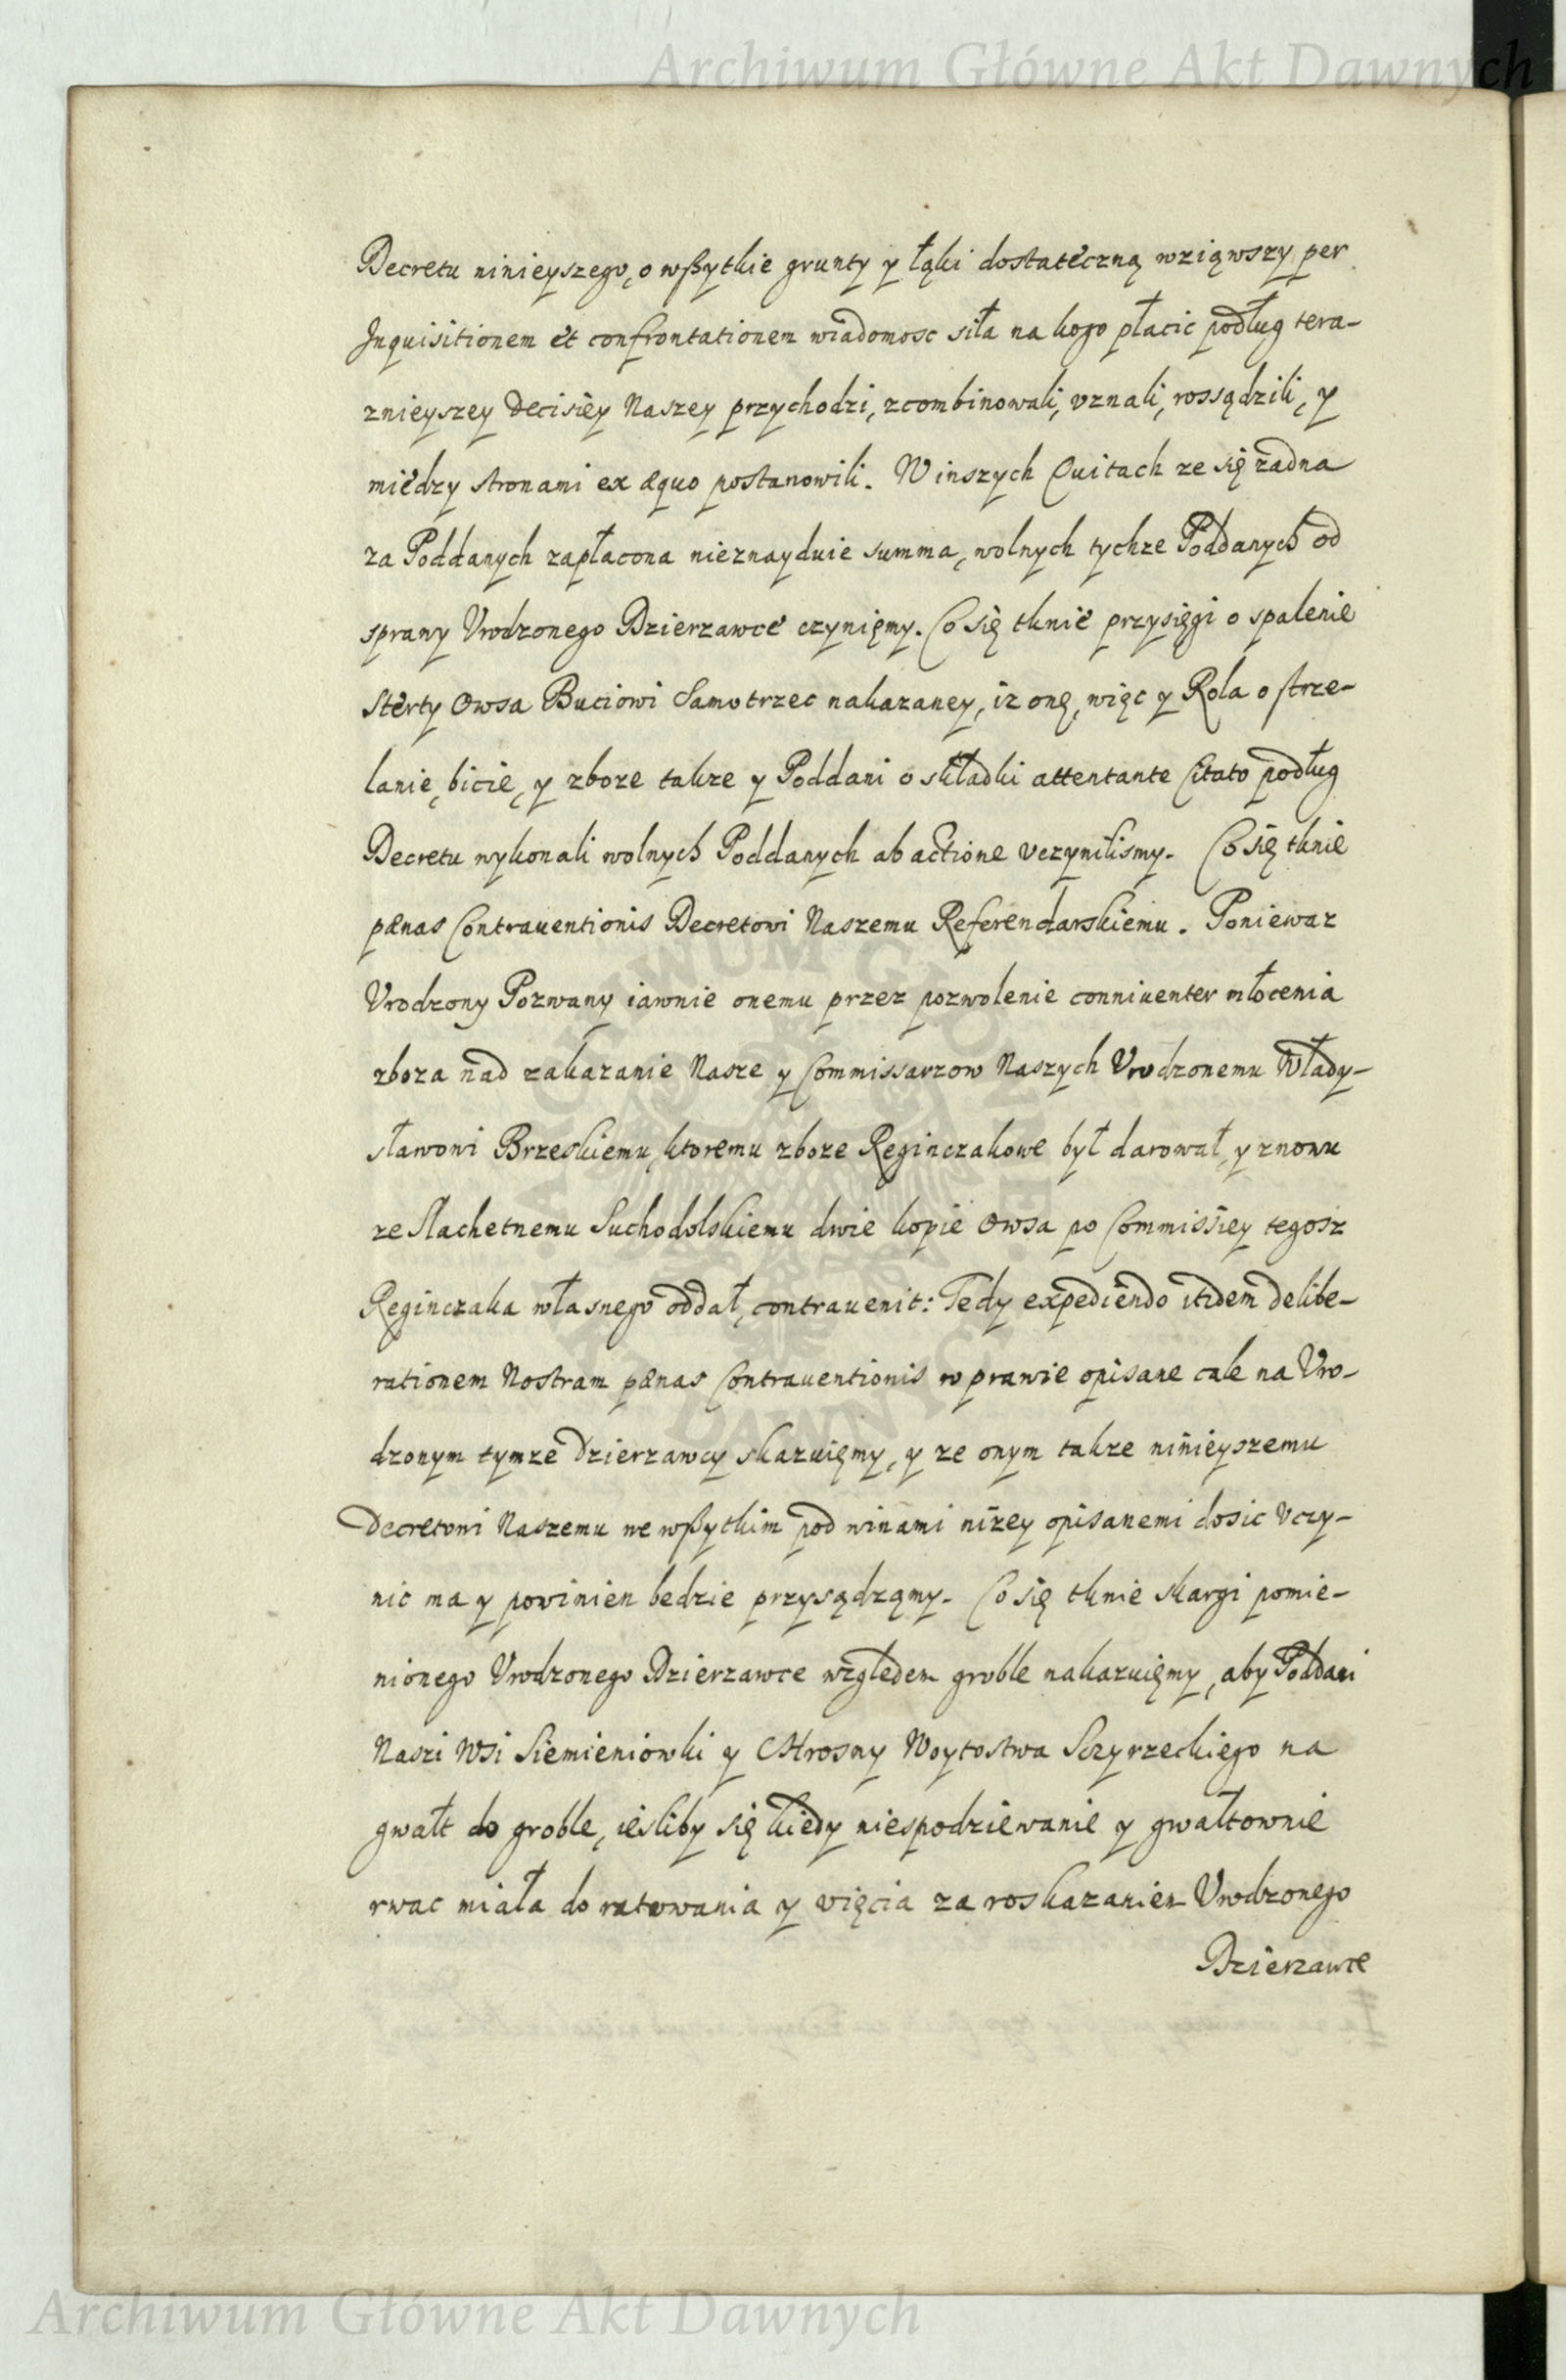 Archiwum Główne Akt Dawnych
Decretu ninieyszego, o wßytkie grunty y łąki dostateczną wziąwszy per
Inquisitionem et confrontationem wiadomosc siła na kogo płacic podług tera-
znieyszey Decisiey Naszey przychodzi, zcombinowali, vznali, rossądzili, y
miedzy stronami ex æquo postanowili. W inszych Quitach ze się żadna
za Poddanych zapłacona nieznayduie summa, wolnych tychze Poddanych od
sprawy Vrodzonego Dzierzawce czynięmy. Co się tknie przysięgi o spalenie
Sterty Owsa Buciowi Samotrzec nakazaney, iz onę, więc y Rola o strze-
lanie, bicie, y zboze takze y Poddani o składki attentante Citato podług
Decretu wykonali wolnych Poddanych ab actione vczynilismy. Co się tknie
pænas Contrauentionis Decretowi Naszemu Referendarskiemu. Poniewaz
Vrodzony Pozwany iawnie onemu przez pozwolenie conniuenter młocenia
zboza nad zakazanie Nasze y Commissarzow Naszych Vrodzonemu Włady-
sławowi Brzeskiemu, ktoremu zboze Reginczakowe był darował, y znowu
ze Slachetnemu Suchodolskiemu dwie kopie Owsa po Commissiey tegosz
Reginczaka własnego oddał, contrauenit: Tedy expediendo itidem delibe-
rationem Nostram pænas Contrauentionis w prawie opisane cale na Vro-
dzonym tymze Dzierzawcy skazuięmy, y ze onym takze ninieyszemu
Decretowi Naszemu we wßytkim pod winami niżey opisanemi dosic vczy-
nic ma y powinien bedzie przysądzamy. Co się tknie skargi pomie-
nionego Vrodzonego Dzierzawce względem groble nakazuięmy, aby Poddani
Naszi Wsi Siemieniowki y Chrosny Woytostwa Sczyrzeckiego na
gwałt do groble, iesliby się kiedy niespodziewanie y gwałtownie
rwac miała do ratowania y vięcia za roskazaniem Vrodzonego
Dzierzawce
Archiwum Główne Akt Dawnych